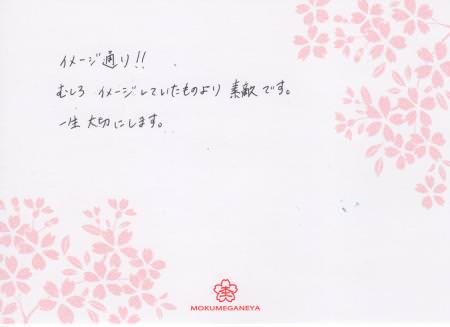 イメージ通り!!
むしろ イメージしていたものより 素敵です。
一生大切にします。
MOKUMEGANEYA